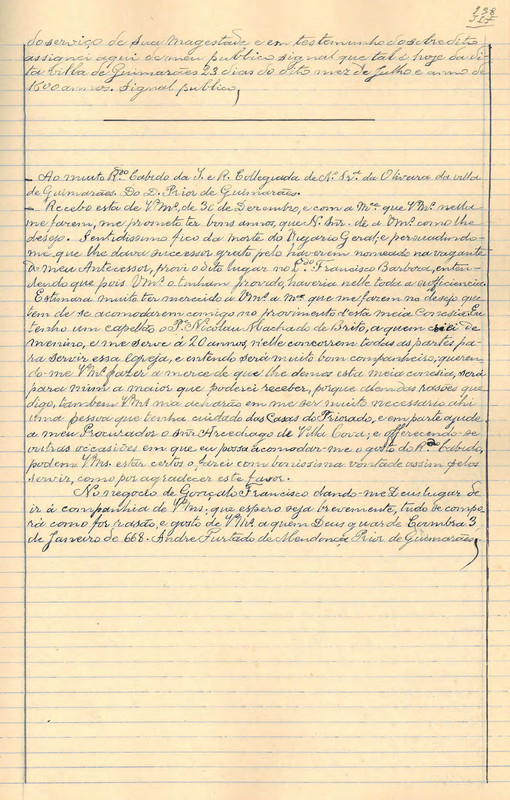 238
do serviço de Sua Magestade e em testemunho do sobredito
assignei aqui de meu publico signal que tal é hoje da di-
ta villa de Guimarães 23 dias do dito mez de Julho e anno de
1500 annos. Signal publico
_ Ao muito R.do Cabido da I. e R. Collegiada de N.ª Sr.ª da Oliveira da villa
de Guimarães. Do D. Prior de Guimarães.
_ Recebo esta de V.Mcê, de 30 de Dezembro, e com a M.cê que V.Mcê nella
me fazem, me prometo ter bons annos, que N. Snr. dê a V.Mcê como lhe
desejo. Sentidissimo fico da morte do Vigario Geral; e persuadindo-
me que lhe dava successor grato pelo haverem nomeado na vagante
de meu Antecessor, provi o dito lugar no Francisco Barbosa, enten-
dendo que pois V.Mcê o tinham provado, haveria nelle toda a sufficiencia.
Estimara muito ter merecido a V.Mcê a M.cê que me fazem no desejo que
tem de se acomodarem comigo no provimento d'esta meia Conesia. Eu
tenho um capellão o P. Nicolau Machado de Brito, a quem criei de
menino, e me serve á 20 annos, n'elle concorrem todas as partes pa-
ra servir essa Egreja, e entendo será muito bom companheiro, queren-
do-me V.Mcê fazer a mercê de que lhe demos esta meia conesia, será
para mim a maior que poderei receber, porque alem das rasões que
digo, tambem V.Mcs m'a avivarão em me ser muito necessario ahi
uma pessoa que tenha cuidado das Casas do Priorado, e em parte ajude
a meu Procurador o Snr Arcediago de Villa Cova; e offerecendo-se
outras occasiões em que eu possa acomodar-me o gosto do R.do Cabido,
podem V.Mcs. estar certos o farei com bonissima vontade assim pelos
servir, como por agradecer este favor.
No negocio de Gonçalo Francisco dando-me Deus lugar de
ir á companhia de V.Mcs. que espero seja brevemente, tudo se compo-
rá como fôr rasão, e gosto de V.Mcê a quem Deus guarde Coimbra 3
de Janeiro de 668. André Furtado de Mendonça Prior de Guimarães